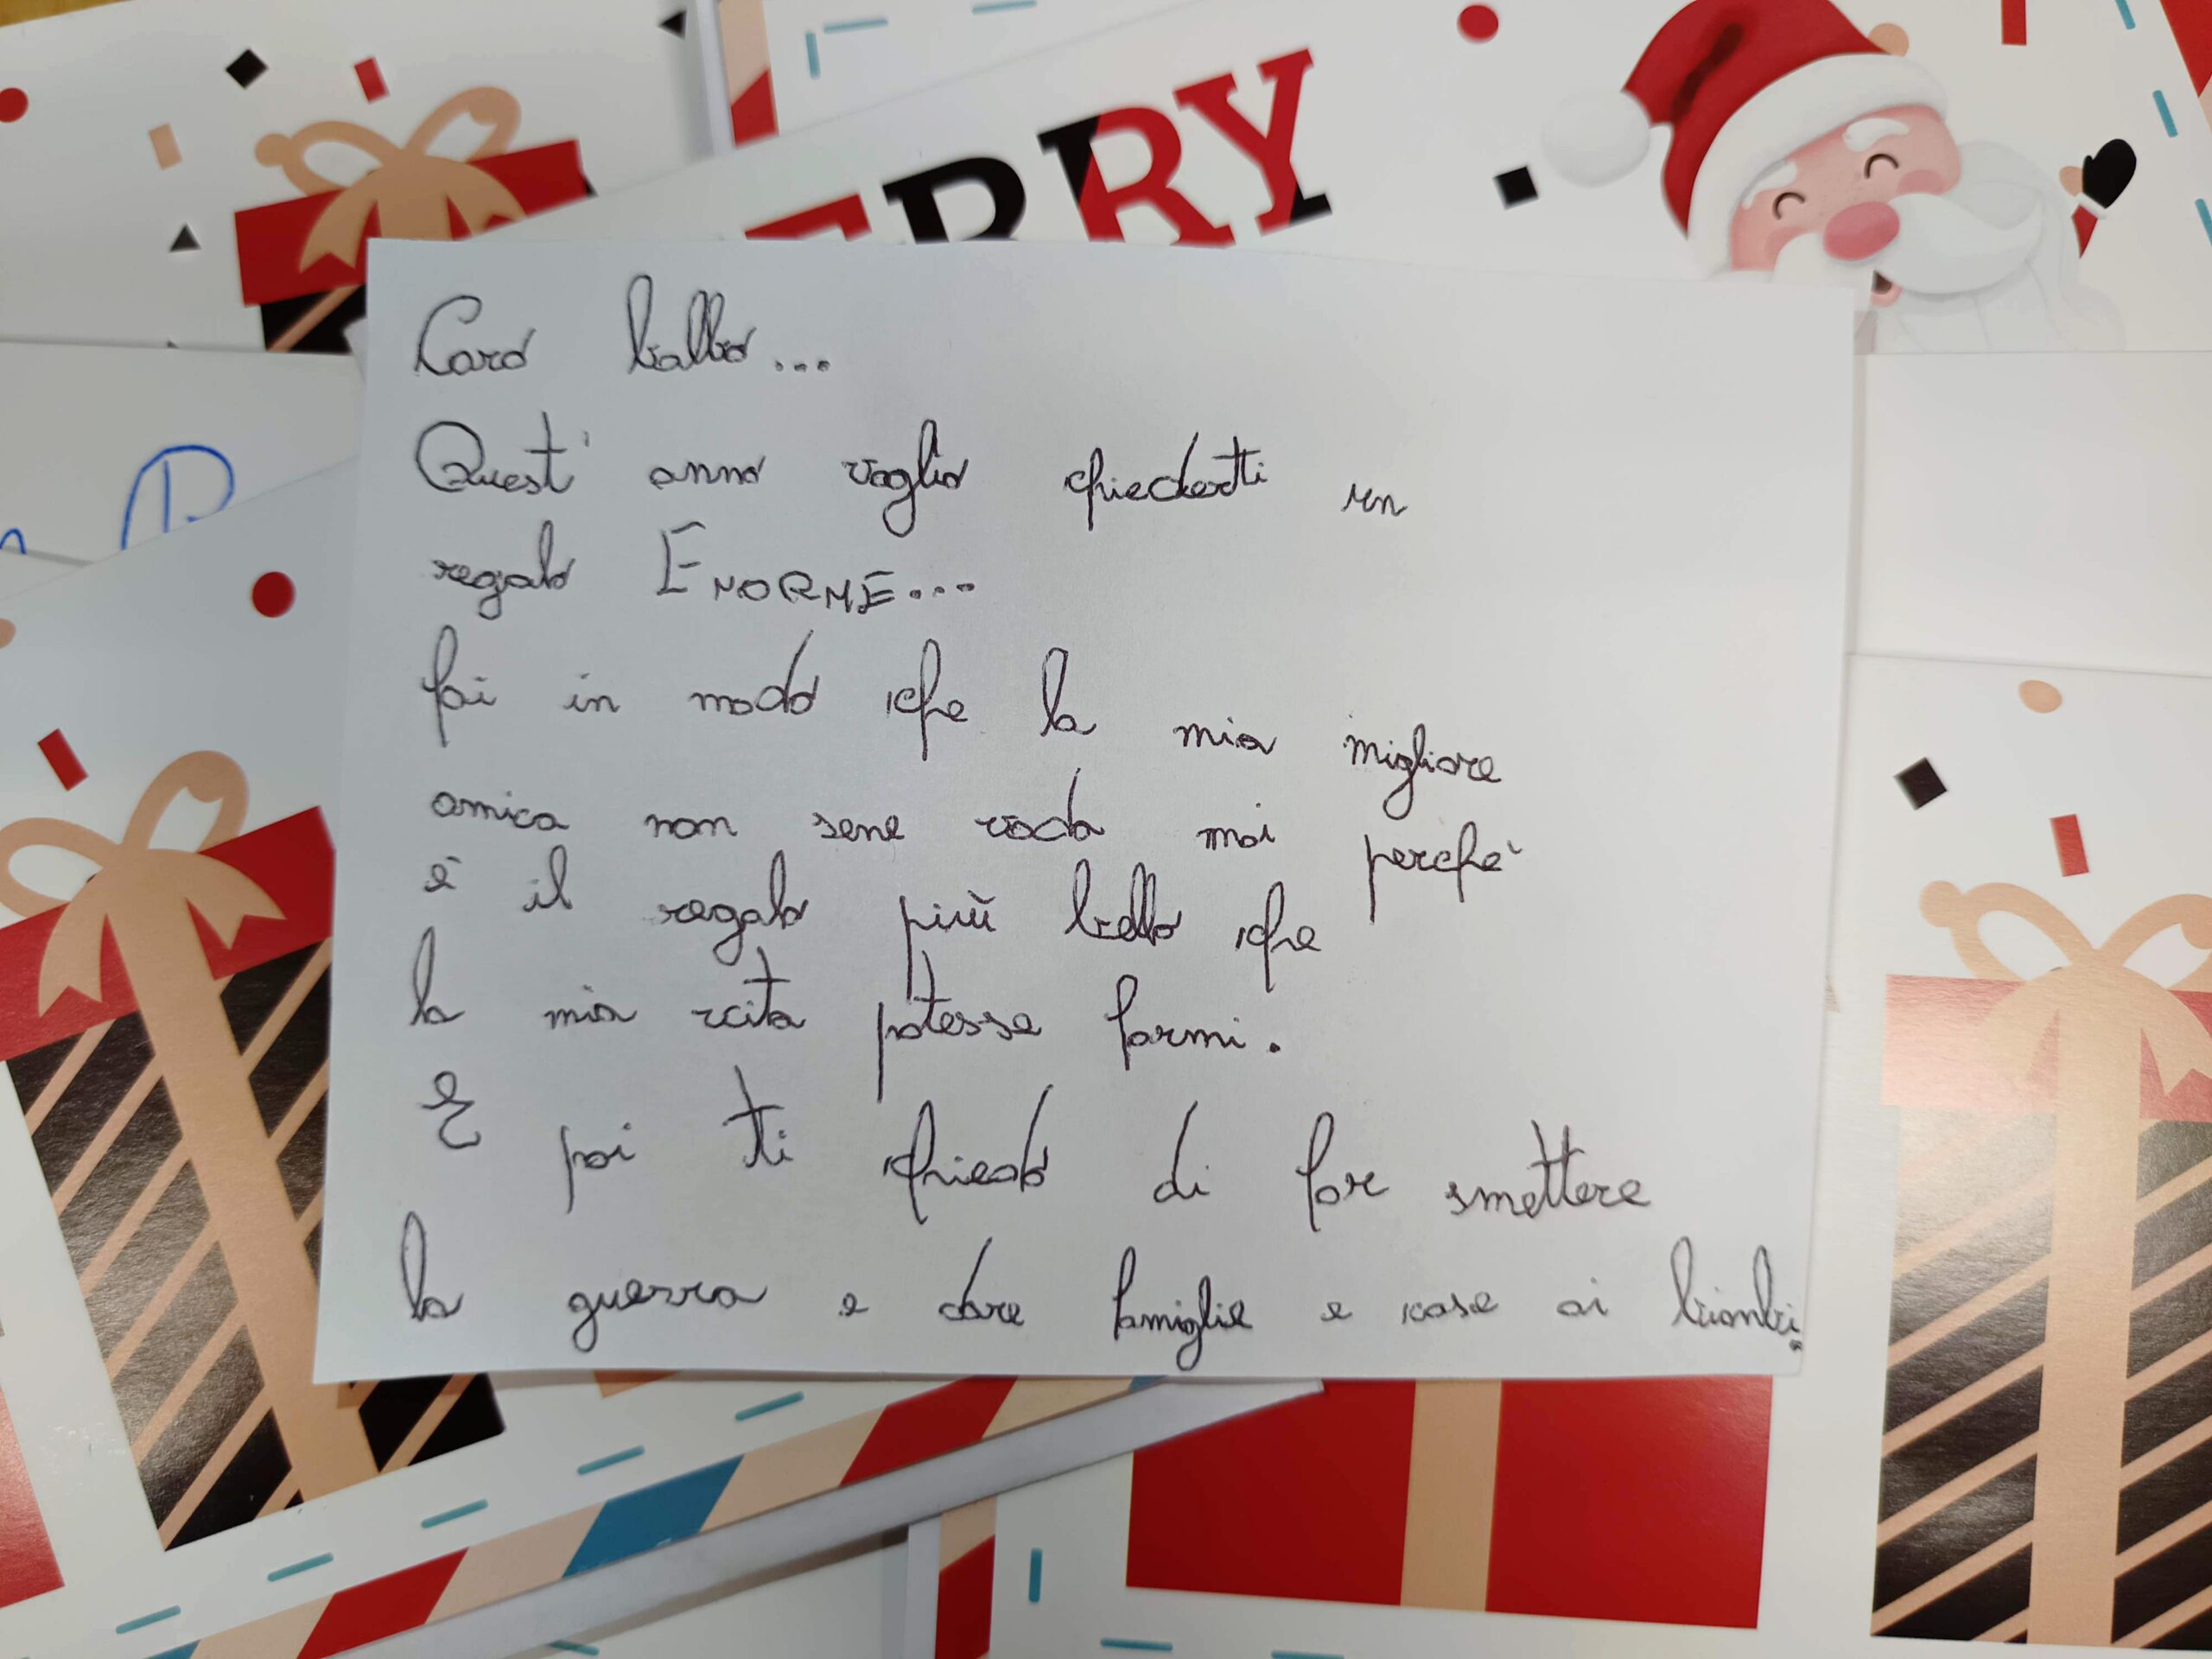 ERRY
Caro babbo...
Quest' anno voglio chiederti un
regalo ENORME...
fai in modo che la mia migliore
amica non sene vada mai perchè
è il regalo più bello che
la mia vita potesse farmi.
E poi ti chiedo di far smettere
la guerra e dare famiglie e case ai bimbi.